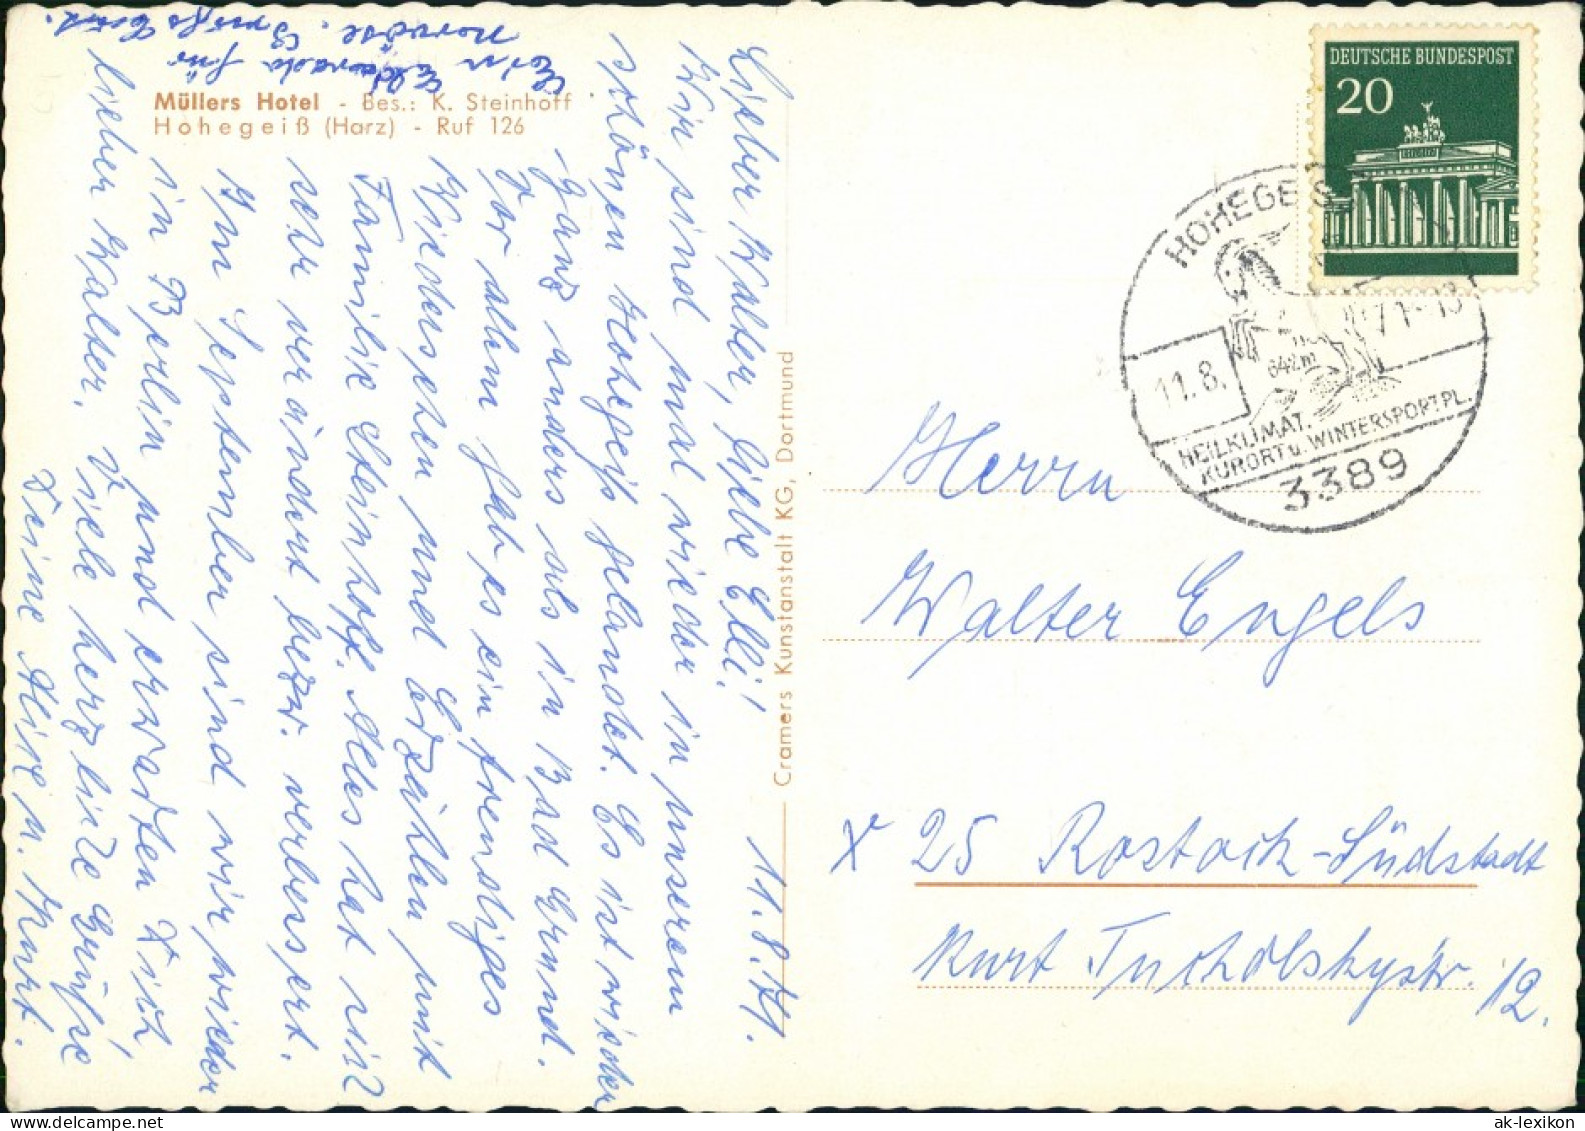 Müllers Hotel - Bes.: K. Steinhoff
Hohegeiß (Harz) - Ruf 126
11.8.71.
Lieber Walter, liebe Elli!
Wir sind mal wieder in unserem
schönen Hohegeiß gelandet. Es ist wieder
ganz anders als in Bad Grund.
Vor allem gab es ein freudiges
Wiedersehen und Erzählen mit
Familie Steinhoff. Alles hat sich
sehr verändert bezw. verbessert.
Im September sind wir wieder
in Berlin und erwarten Dich,
lieber Walter. Viele herzliche Grüße
Deine Alice u. Kurt.
Cramers Kunstanstalt KG, Dortmund
DEUTSCHE BUNDESPOST
20
HOHEGEISS
11.8.71-13
642m
HEILKLIMAT.
KURORT u. WINTERSPORTPL.
3389
Herrn
Walter Engels
X 25 Rostock-Südstadt
Kurt Tucholskystr. 12.
ak-lexikon